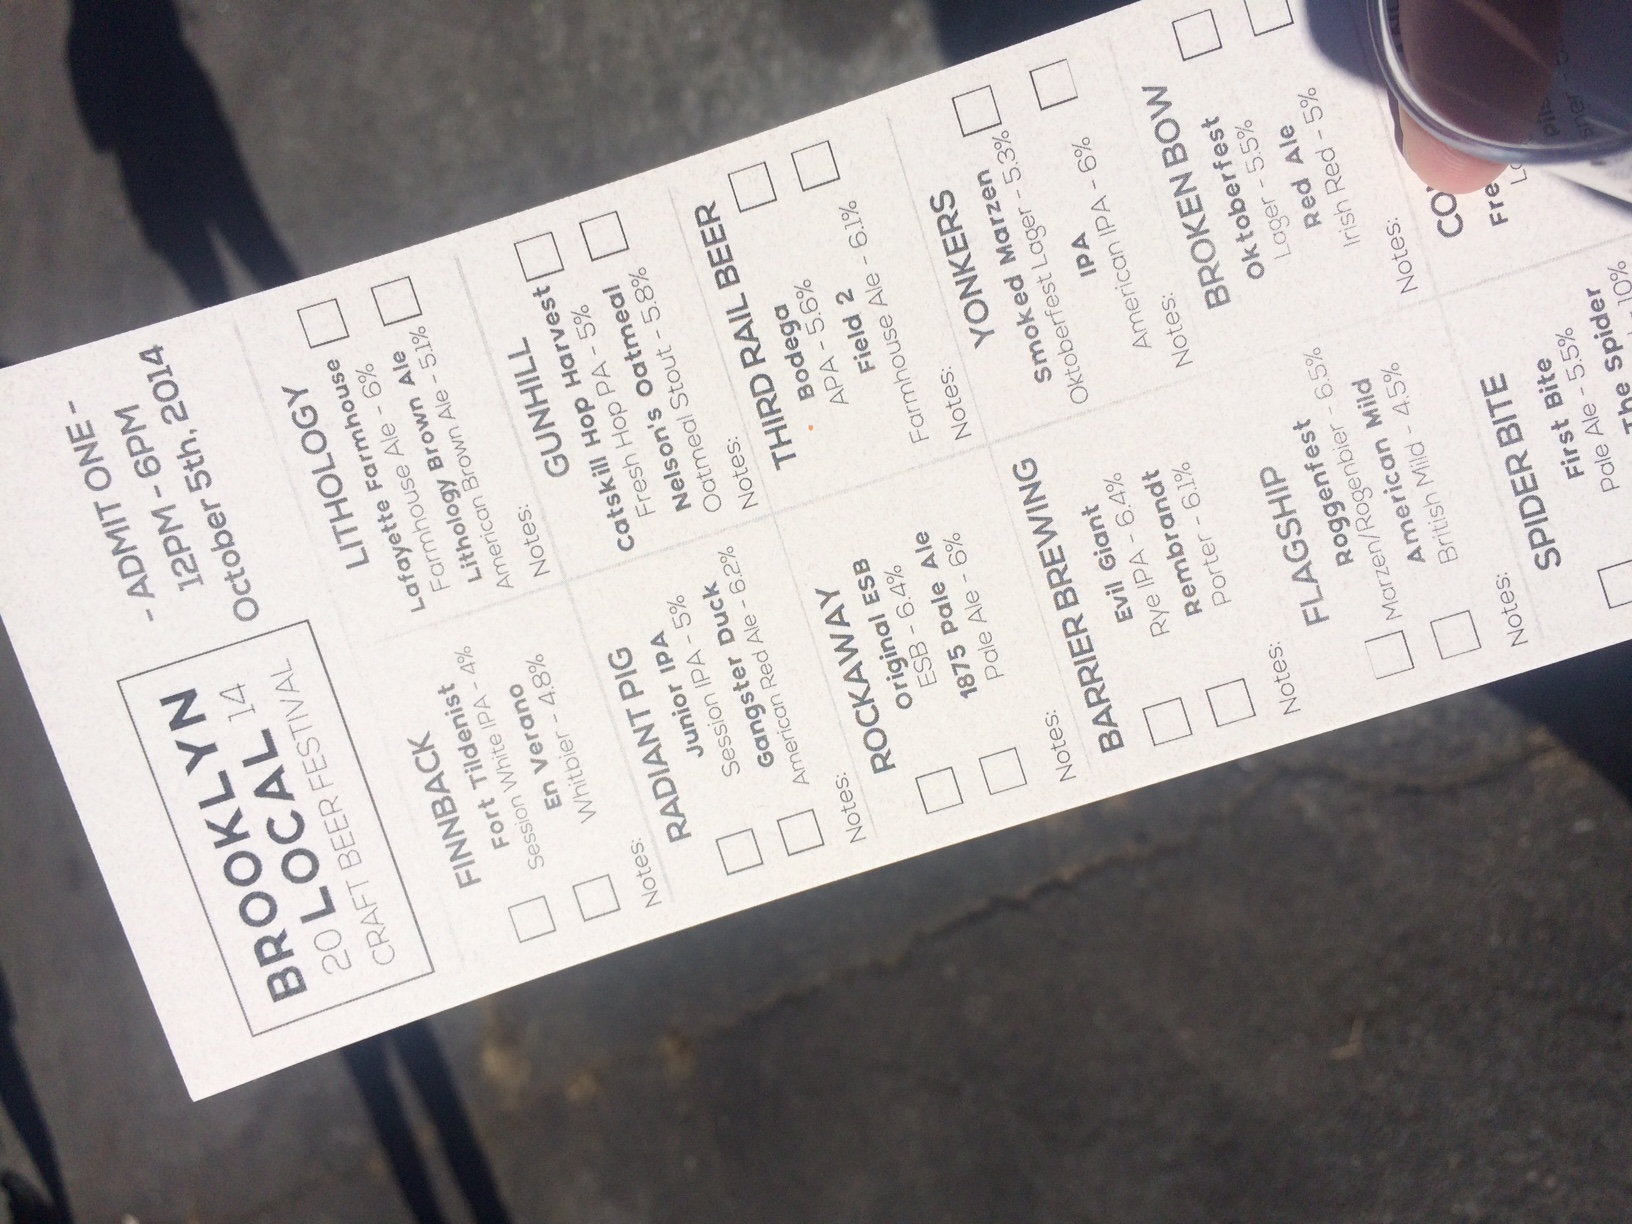 BROOKLYN
LOCAL
2014
CRAFT BEER FESTIVAL
- ADMIT ONE -
12PM - 6PM
October 5th, 2014
FINNBACK
Fort Tildenist
Session White IPA - 4%
En Verano
Whitbier - 4.8%
Notes:
RADIANT PIG
Junior IPA
Session IPA - 5%
Gangster Duck
American Red Ale - 6.2%
Notes:
ROCKAWAY
Original ESB
ESB - 6.4%
1875 Pale Ale
Pale Ale - 6%
Notes:
BARRIER BREWING
Evil Giant
Rye IPA - 6.4%
Rembrandt
Porter - 6.1%
Notes:
FLAGSHIP
Roggenfest
Marzen/Rogenbier - 6.5%
American Mild
British Mild - 4.5%
Notes:
SPIDER BITE
First Bite
Pale Ale - 5.5%
The Spider
10%
LITHOLOGY
Lafayette Farmhouse
Farmhouse Ale - 6%
Lithology Brown Ale
American Brown Ale - 5.1%
Notes:
GUNHILL
Catskill Hop Harvest
Fresh Hop PA - 5%
Nelson's Oatmeal
Oatmeal Stout - 5.8%
Notes:
THIRD RAIL BEER
Bodega
APA - 5.6%
Field 2
Farmhouse Ale - 6.1%
Notes:
YONKERS
Smoked Marzen
Oktoberfest Lager - 5.3%
IPA
American IPA - 6%
Notes:
BROKEN BOW
Oktoberfest
Lager - 5.5%
Red Ale
Irish Red - 5%
Notes:
CO
Fre